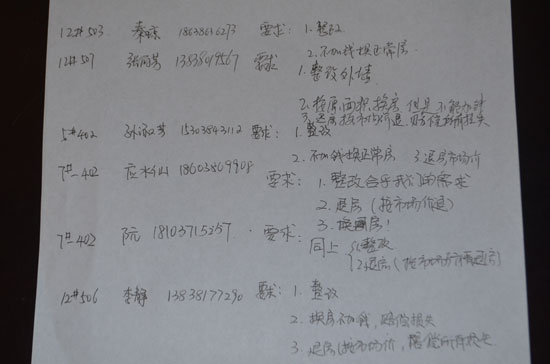 12#503 秦琼 18638616273 要求: 1. 整改
2. 不加钱换正常房
12#507 张 要求 1. 整改外墙
2. 按原面积换房 但是不能加钱
3. 退房按市场价退, 赔偿所有损失
5#402 孙 15303843112 要求: 1. 整改
2. 不加钱换正常房 3 退房市场价
7#-402 应 山 18603809908 要求: 1. 整改合乎我们的需求
2. 退房 (按市场价退)
3. 换房!
7#402 阮 18103715257. 要求: 同上 1. 整改
2 退房 (按市场价退房)
12#506 李静 13838177290 要求: 1. 整改
2. 换房不加钱, 赔偿损失
3. 退房按市场价, 赔偿所有损失